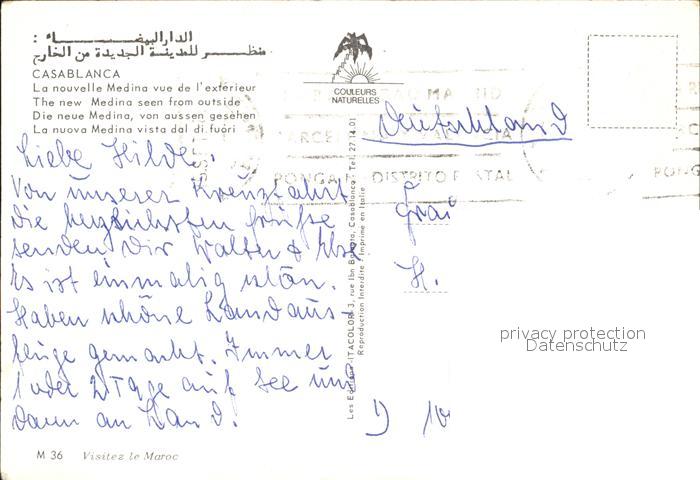 الدار البيضاء :
منظر للمدينة الجديدة من الخارج
CASABLANCA
La nouvelle Medina vue de l'extérieur
The new Medina seen from outside
Die neue Medina, von aussen gesehen
La nuova Medina vista dal di fuori
COULEURS
NATURELLES
MADRID
BARCELONA
PONGA DISTRITO POSTAL
PONG
Deutschland
Liebe Hilde.
Von unserer Kreuzfahrt
die herzlichsten Grüße
senden Dir Walter & Else
Es ist einmalig schön.
Haben schöne Landaus-
flüge gemacht. Immer
1 oder 2 Tage auf See und
dann an Land.
Frau
H.
D
Les Editions "ITACOLOR" 3, rue Ibn Casablanca - Tel. 27.14.01
Reproduction Interdite - Imprimé en Italie
privacy protection
Datenschutz
M 36 Visitez le Maroc